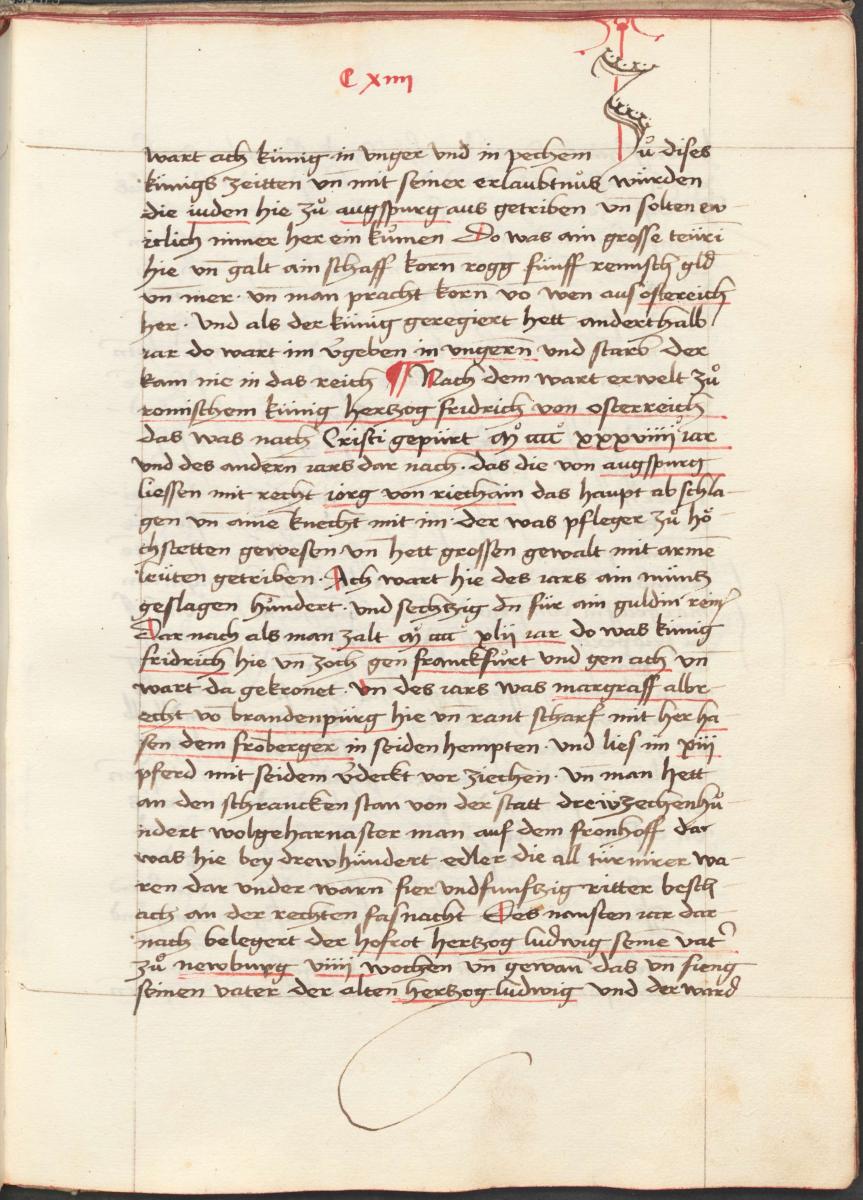 C xiiii
wart ach künig in vnger vnd in pechem Zů dises
künigs zeitten vn̄ mit seiner erlaubtnůs würden
die iuden hie zů augspurg aus getriben vn̄ solten ew
iclich nimer her ein kůmen Do was ain grosse teüri
hie vn̄ galt ain schaff korn rogg fünff reinisch gld
vn̄ mer · vn̄ man pracht korn vo wen aus ostereich
her · Vnd als der künig geregiert hett anderthalb
iar do wart im v̄geben in vngern̄ vnd starb der
kam nie in das reich ¶ Nach dem wart erwelt zů
romischem künig hertzog fridrich von osterreich
das was nach Cristi gepürt mͦ cccc xxxviiii iar
vnd des andern iars dar nach · das die von augspurg
liessen mit recht iörg von riechain das haupt ab schla-
gen vn̄ aine knecht mit im · der was pfleger zů hö
chstetten gewesen vn̄ hett grossen gewalt mit armē
leüten getriben · Ach wart hie des iars ain müntz
geslagen hůndert · vnd sechtzig dn̄ für ain guldin rein
Dar nach als man zalt mͦ cccc xlii iar do was künig
fridrich hie vn̄ zoch gen franckfůrt vnd gen ach vn̄
wart da gekronet · Vn̄ des iars was margraff albr-
echt vō brandenpürg hie vn̄ rant scharf mit her ha
sen dem froberger in seiden hempten · vnd lies im xiii
pferd mit seidem v̄deckt vor ziechen · vn̄ man hett
an den schrancken stan von der statt drewzechenhů-
ndert wolgeharnaster man auf dem fronhoff dar
was hie bey drewhündert edler die all türnirer wa-
ren dar vnder warn̄ fier vnd funftzig ritter besch
ach an der rechten fasnacht Des nausten iar dar-
nach belegert der hofrot hertzog ludwig seinē vat
zů newburg viiii wochen vn̄ gewan̄ das vn̄ fieng
seinen vater der alten hertzog ludwig vnd der ward